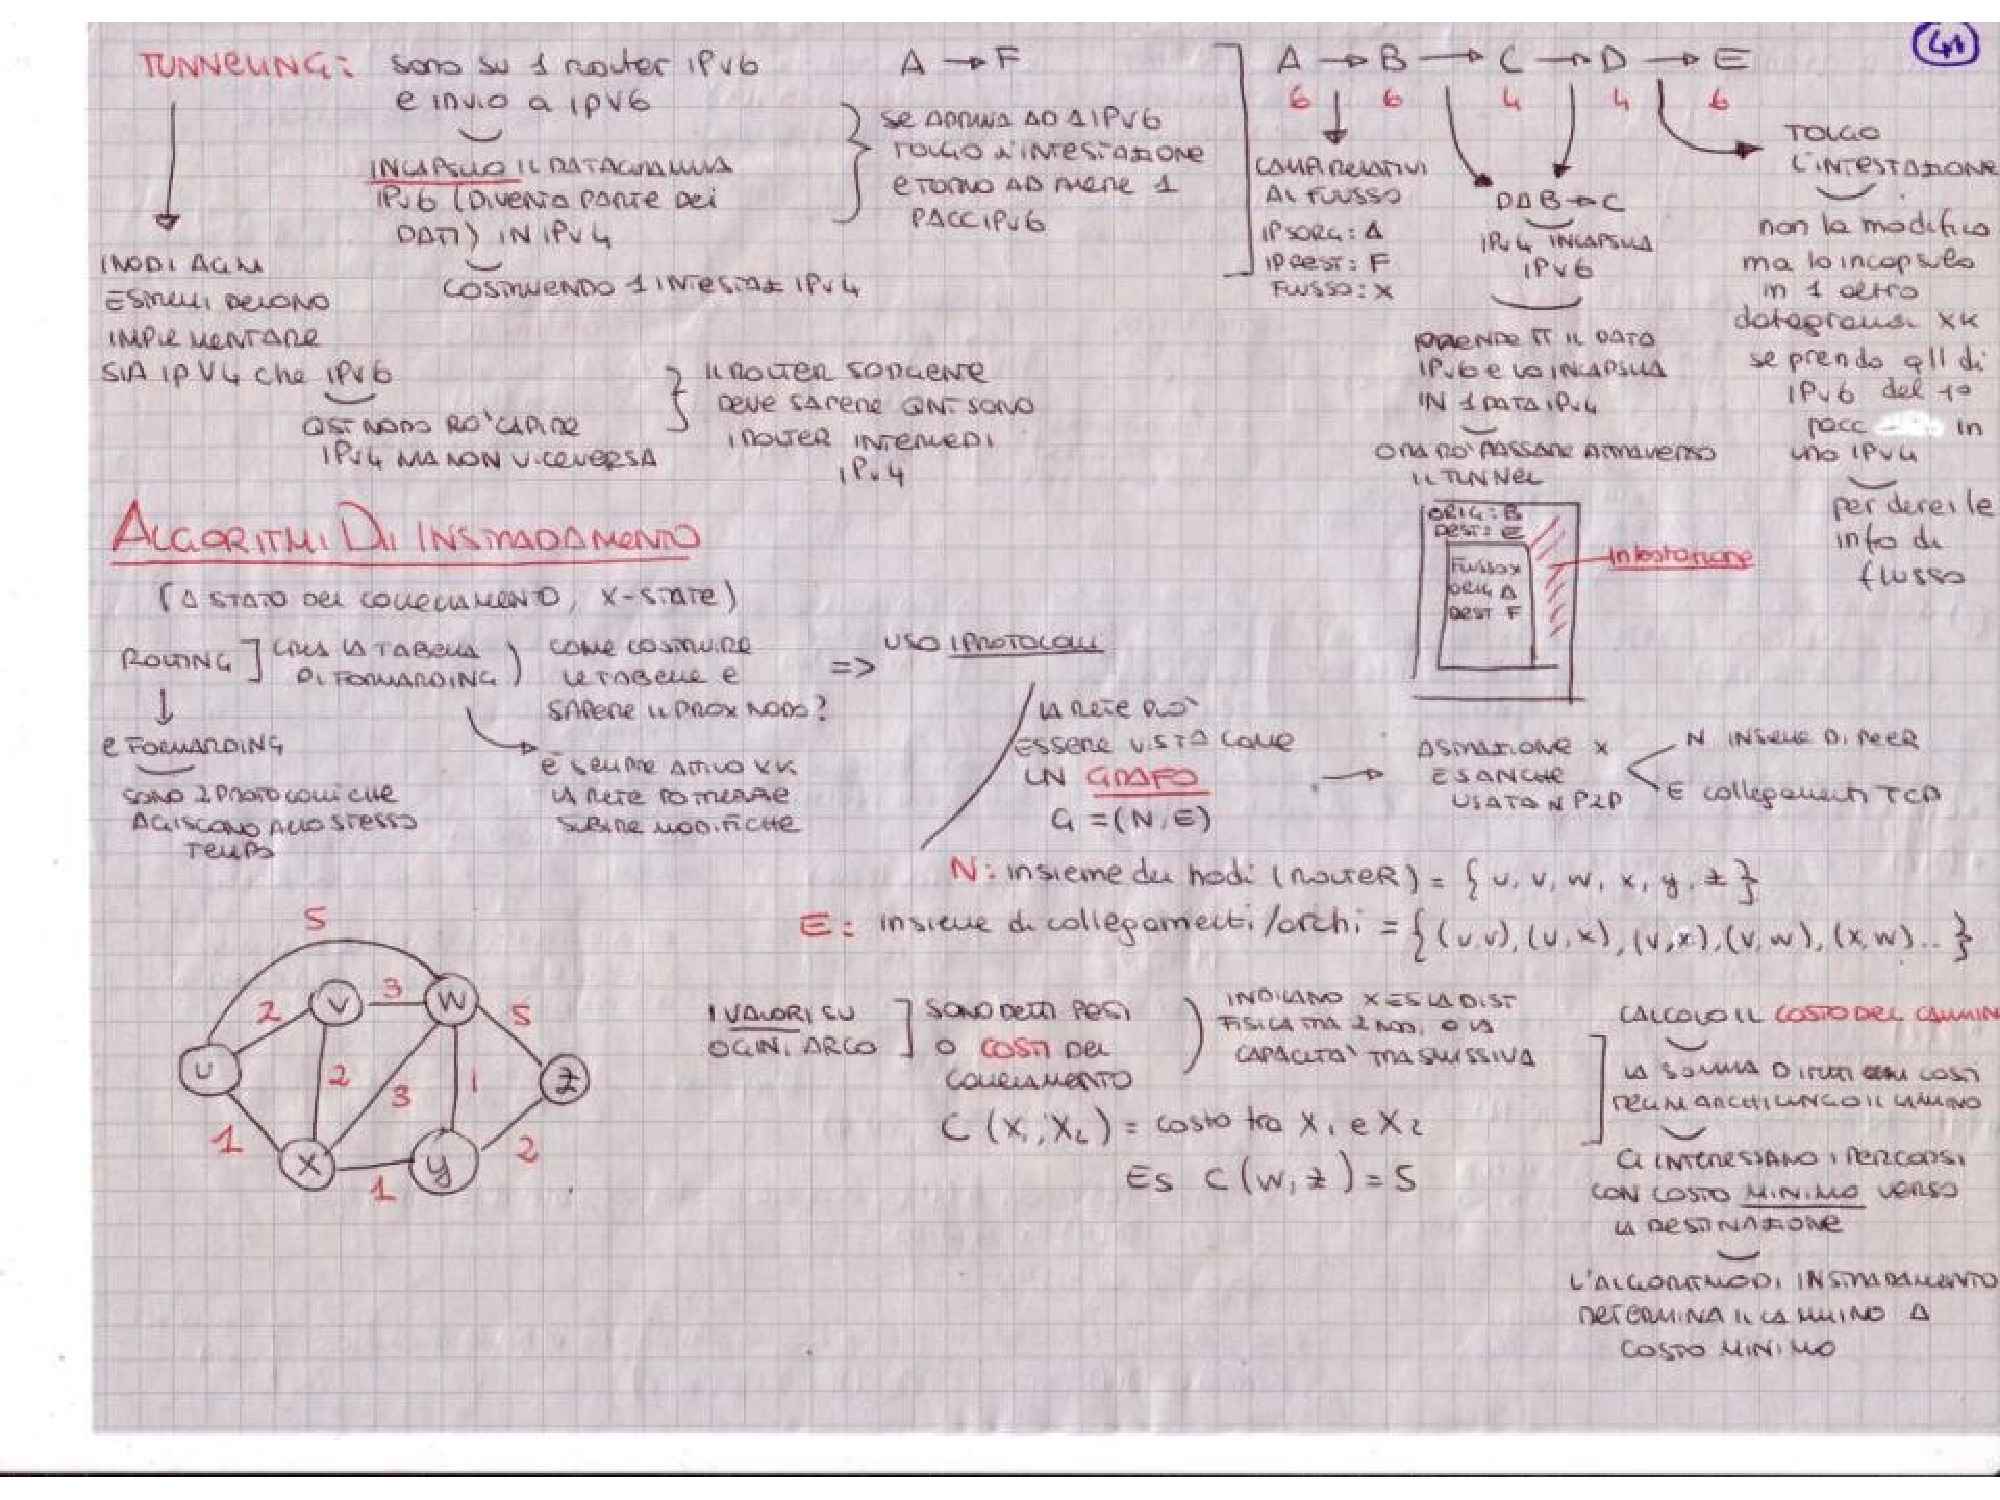 41
TUNNELING: sono su 1 router IPv6
e invio a IPV6
INCAPSULO IL DATAGRAMMA
IPv6 (DIVENTA PARTE DEI
DATI) IN IPV4
COSTRUENDO 1 INTESTAZ IPv4
A → F
SE ARRIVA AD 1 IPV6
TOLGO L'INTESTAZIONE
E TORNO AD AVERE 1
PACC IPv6
I NODI AGLI
ESTREMI DEVONO
IMPLEMENTARE
SIA IPV4 che IPV6
QST NODO PO' CAPIRE
IPv4 MA NON VICEVERSA
IL ROUTER SORGENTE
DEVE SAPERE QNT SONO
I ROUTER INTERMEDI
IPv4
A → B → C → D → E
6 6 4 4 6
CAMPI RELATIVI
AL FLUSSO
IPSORG: A
IPDEST: F
FLUSSO: X
DA B → C
IPv4 INCAPSULA
IPV6
PRENDE TT IL DATA
IPv6 E LO INCAPSULA
IN 1 DATA IPv4
ORA PO' PASSARE ATTRAVERSO
IL TUNNEL
TOLGO
L'INTESTAZIONE
non la modifico
ma lo incapsulo
in 1 altro
datagramma XK
se prendo qll di
IPV6 del 1°
pacc in
uno IPV4
perderei le
info di
flusso
ORIG: B
DEST: E
FLUSSO X
ORIG A
DEST F
intestazione
ALGORITMI DI INSTRADAMENTO
(A STATO DEL COLLEGAMENTO, X-STATE)
ROUTING
CREA LA TABELLA
DI FORWARDING
COME COSTRUIRE
LE TABELLE E
SAPERE IL PROX NODO?
=> USO I PROTOCOLLI
E FORWARDING
SONO 2 PROTOCOLLI CHE
AGISCONO ALLO STESSO
TEMPO
È SEMPRE ATTIVO XK
LA RETE POTREBBE
SUBIRE MODIFICHE
LA RETE PUO'
ESSERE VISTA COME
UN GRAFO
G = (N, E)
ASTRAZIONE X
ES ANCHE
USATA N P2P
N INSIEME DI PEER
E collegamenti TCP
N: insieme dei nodi (ROUTER) = { u, v, w, x, y, z }
E: insieme di collegamenti/archi = { (u,v), (u,x), (v,x), (v,w), (x,w)... }
5
2 V 3 W 5
U 2 3 1 Z
1 X 1 y 2
I VALORI SU
OGNI ARCO
SONO DETTI PESI
O COSTI DEL
COLLEGAMENTO
INDICANO X ES LA DIST
FISICA TRA 2 NODI O LA
CAPACITA' TRASMISSIVA
C (X1, X2) = costo tra X1 e X2
ES C(W, Z) = 5
CALCOLO IL COSTO DEL CAMMIN
LA SOMMA DI TUTTI COSTI
DEGLI ARCHI LUNGO IL CAMMINO
CI INTERESSANO I PERCORSI
CON COSTO MINIMO VERSO
LA DESTINAZIONE
L'ALGORITMO DI INSTRADAMENTO
DETERMINA IL CAMMINO A
COSTO MINIMO